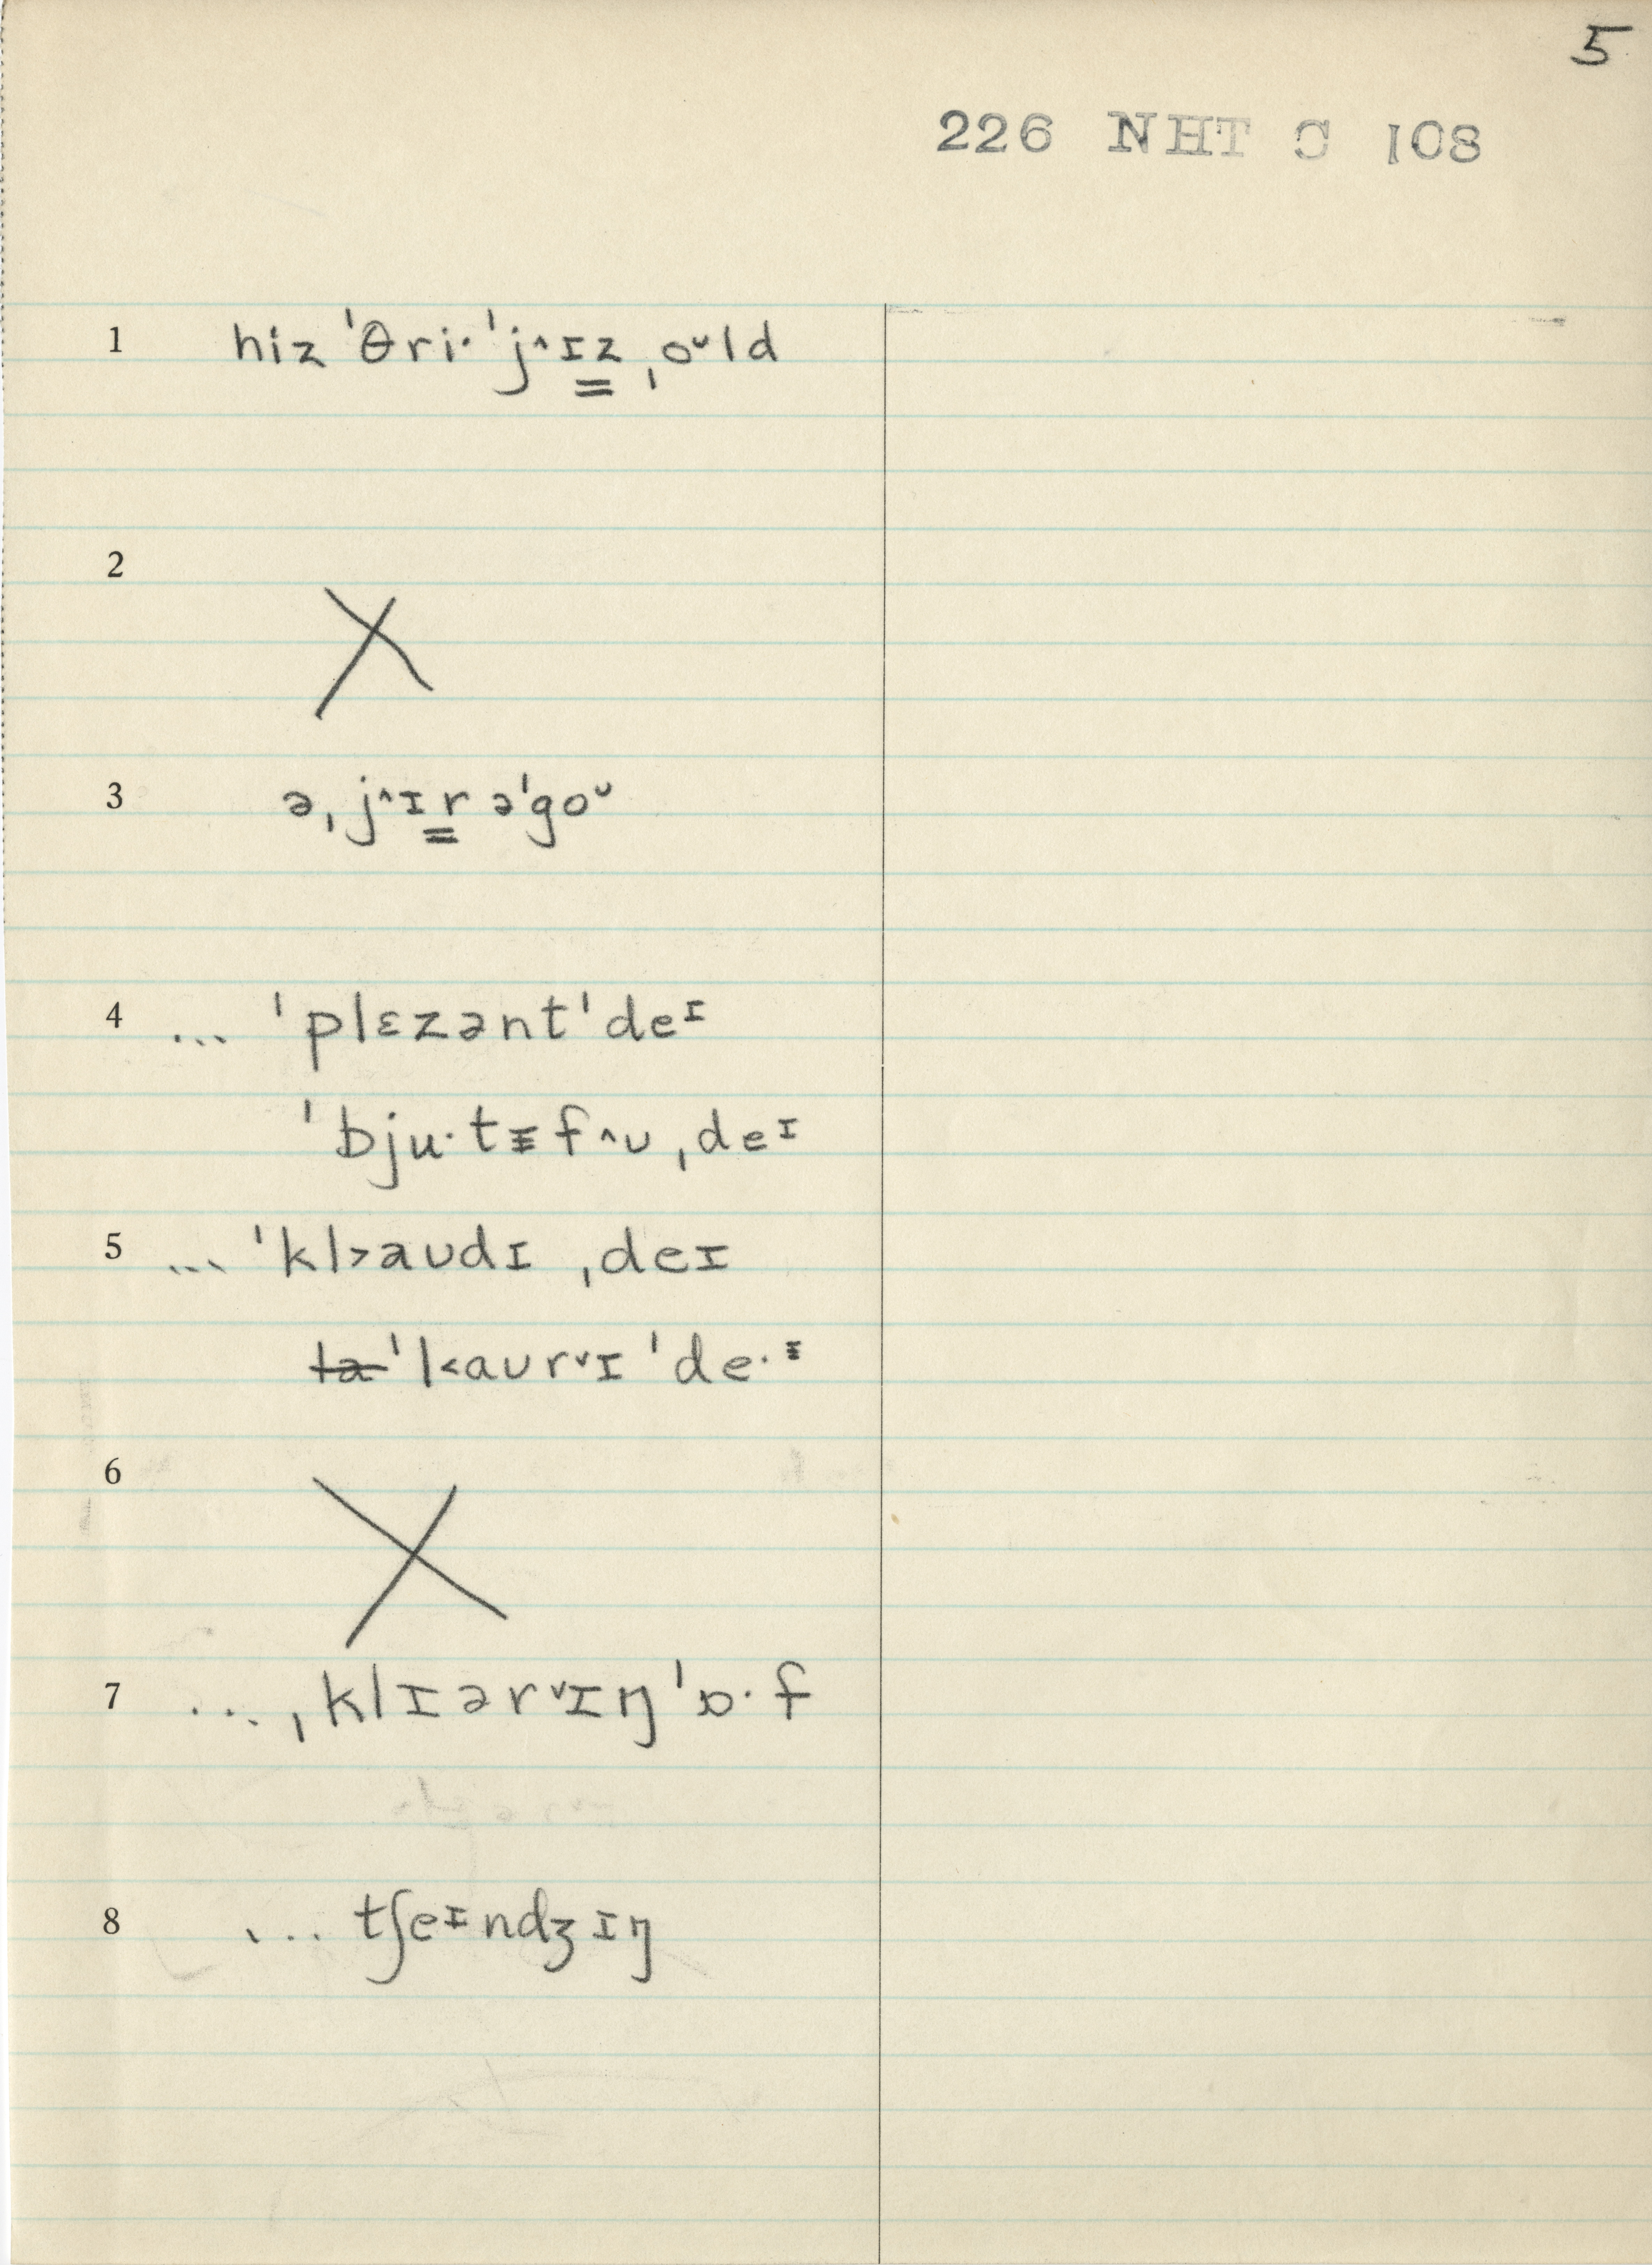 5
226 NHT C 108
1 hiz ˈθri· ˈj^ɪz ˌoᴜld
2 X
3 ə ˌj^ɪr əˈgoᴜ
4 ... ˈplɛzənt ˈdeɪ
ˈbju·tɪf^ᴜ ˌdeɪ
5 ... ˈkl>aᴜdɪ ˌdeɪ
ˈl<aᴜrˇɪ ˈde·ɪ
6 X
7 ... ˌklɪərˇɪŋ ˈɒ·f
8 ... tʃeɪndʒɪŋ